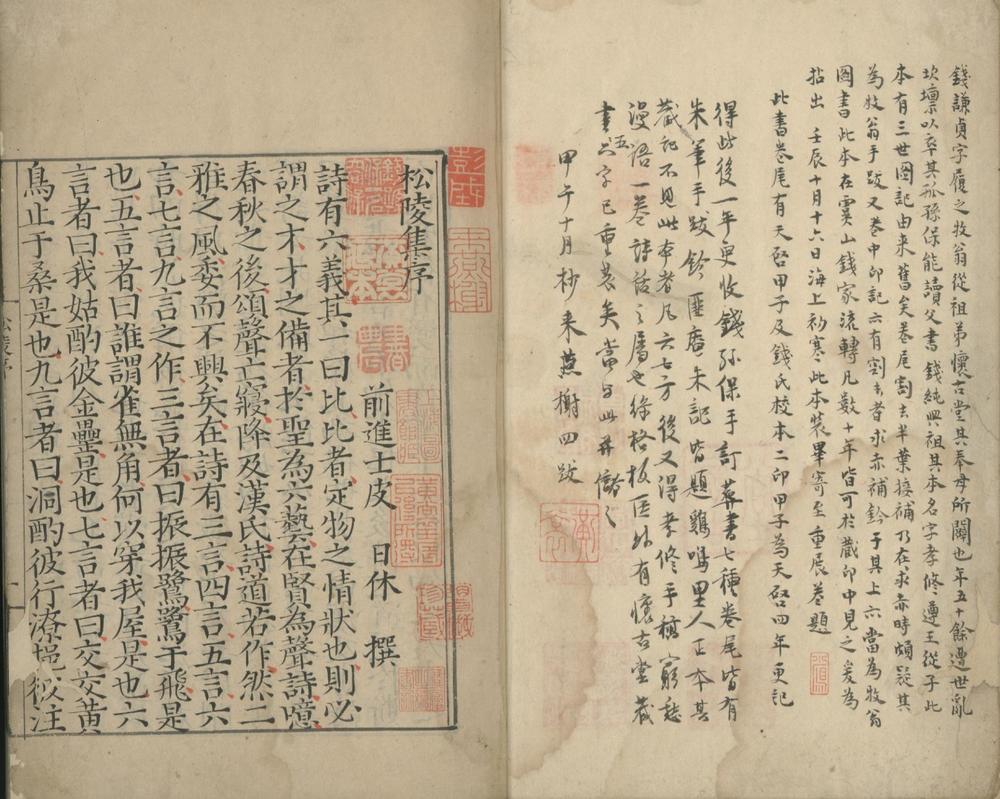 錢謙貞字履之牧翁從祖弟懷古堂其奉母所闢也年五十餘遭世亂
坎壈以卒其孤孫保能讀父書錢純興祖其本名字孝修遵王從子此
本有三世圖記由来舊矣卷尾割去半葉接補乃在求赤時頗疑其
為牧翁手跋又卷中印記六有割去者求赤補鈐于其上六當為牧翁
圖書此本在虞山錢家流轉凡數十年皆可於藏印中見之爰為
拈出 壬辰十月十六日海上初寒此本裝畢寄至重展并題
此書卷尾有天啓甲子及錢氏校本二印甲子為天啓四年更記
得此後一年更收錢孫保手訂葬書七種卷尾皆有
朱筆手跋鈐匪庵朱記皆題鷄鳴里人正本其
藏記不見此本者凡六七方後又得孝修手稿窮愁
漫語一卷詩話之屬也綠格板匡外有懷古堂藏
書五字已重裝矣當与此并儲之
甲午十月杪来燕榭四跋
松陵集序
前進士皮 日休 撰
詩有六義其一曰比比者定物之情狀也則必
謂之才才之備者於聖為六藝在賢為聲詩噫
春秋之後頌聲亡寢降及漢氏詩道若作然二
雅之風委而不興矣在詩有三言四言五言六
言七言九言之作三言者曰振振鷺鷺于飛是
也五言者曰誰謂雀無角何以穿我屋是也六
言者曰我姑酌彼金罍是也七言者曰交交黃
鳥止于桑是也九言者曰泂酌彼行潦挹彼注